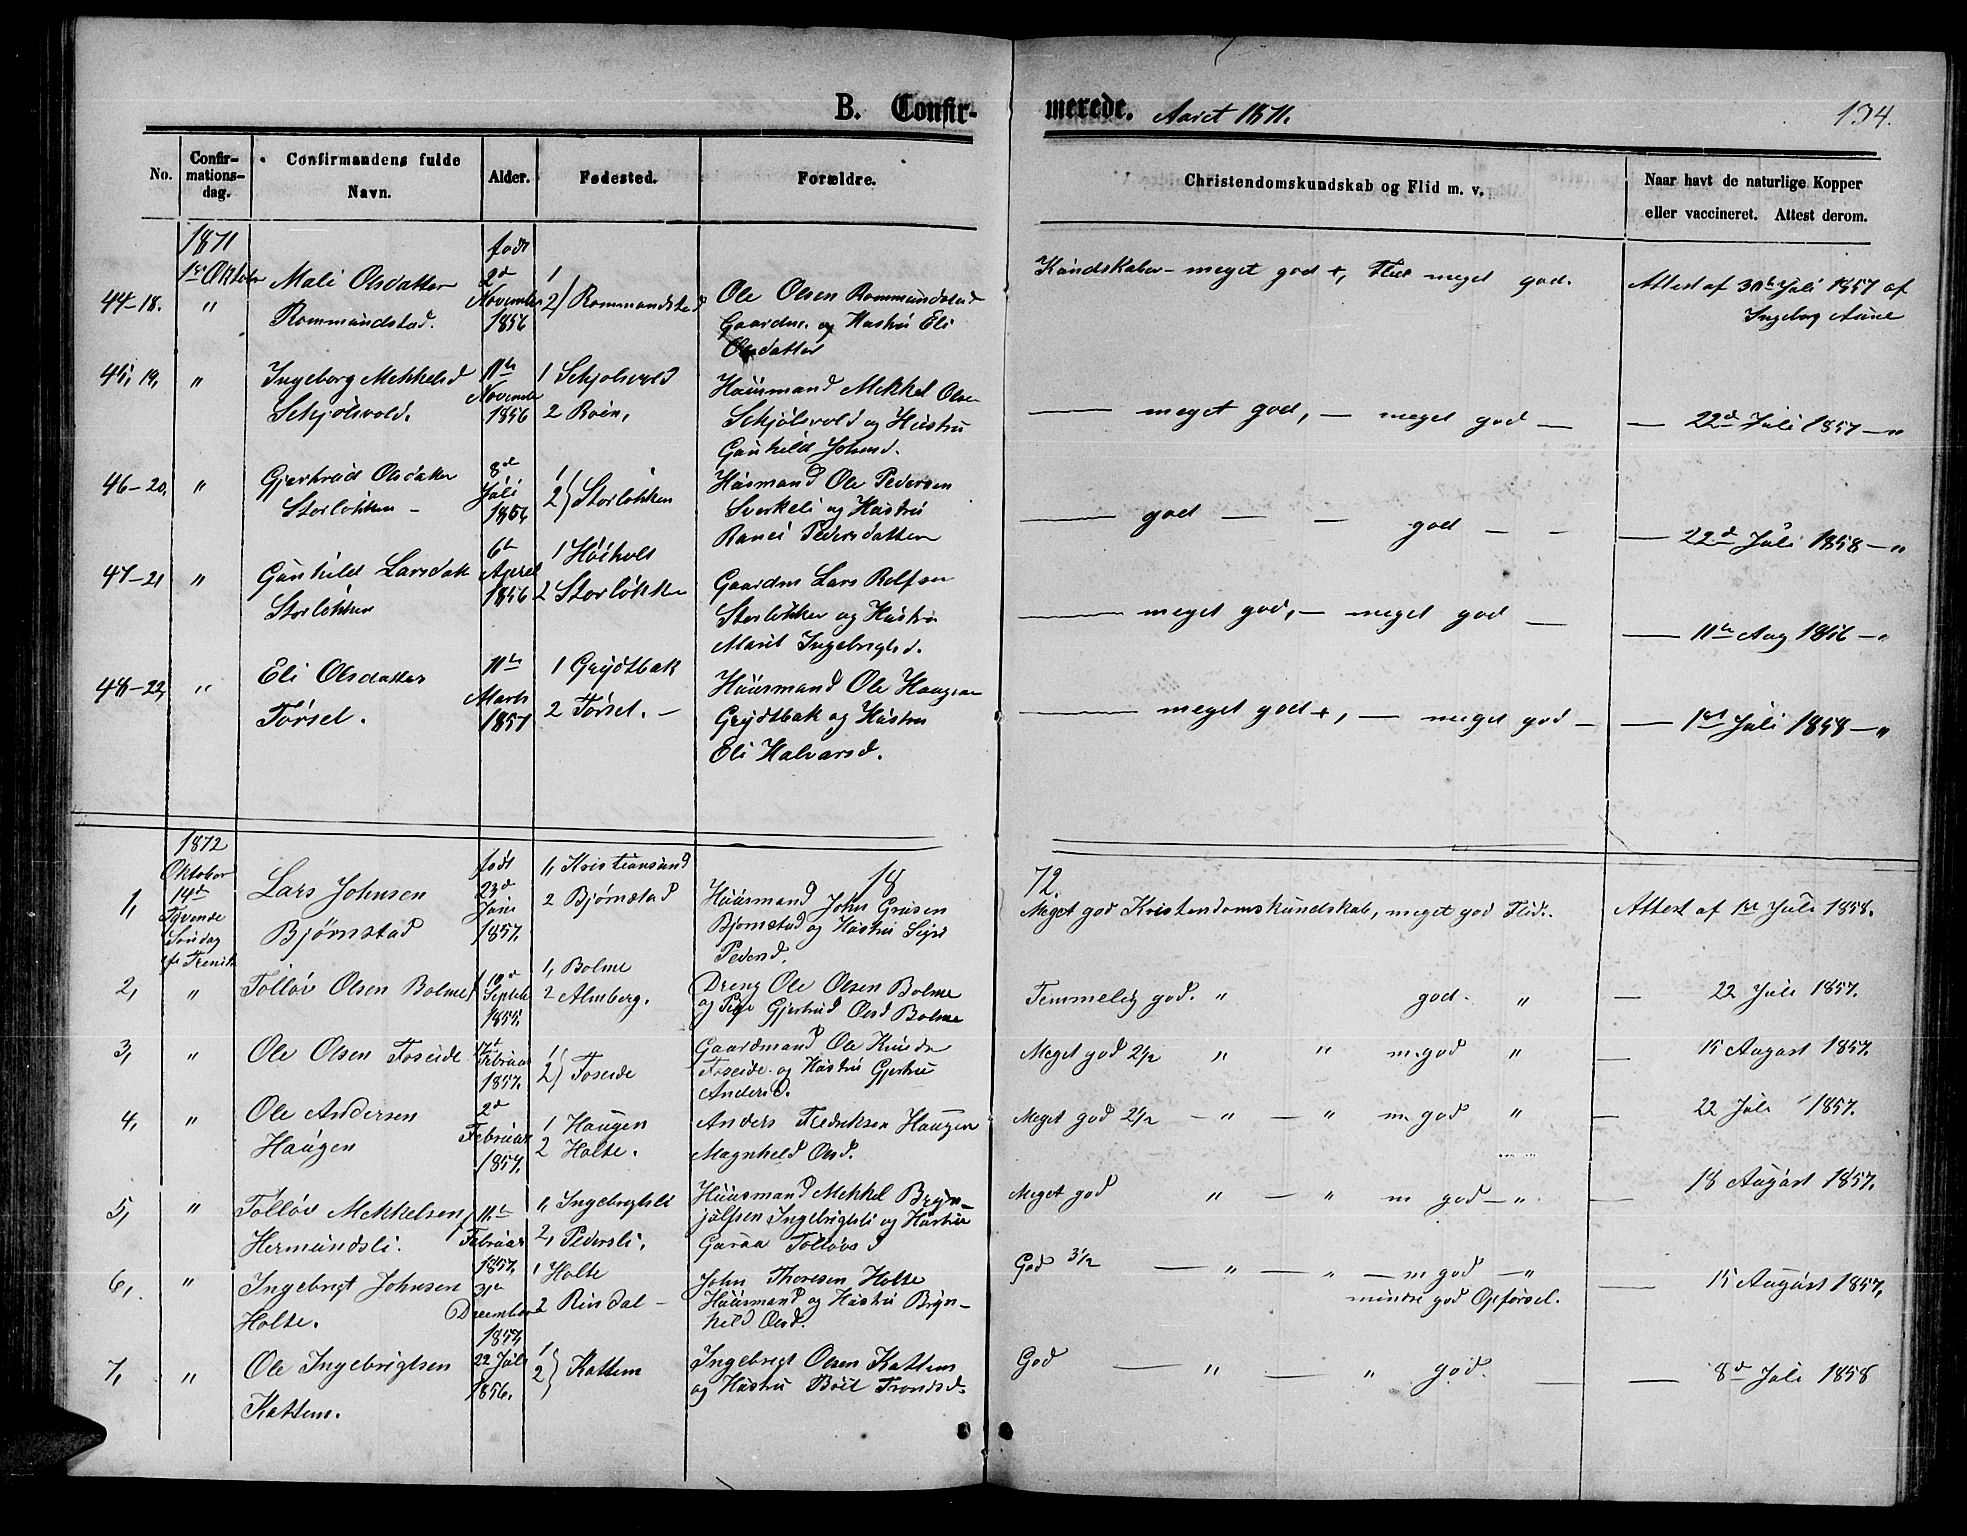 B. Confir-
merede. Aaret 1871.
134.
No.
Confir-
mations-
dag.
Confirmandens fulde
Navn.
Alder.
Fødested.
Forældre.
Christendomskundskab og Flid m. v.
Naar havt de naturlige Kopper
eller vaccineret. Attest derom.
1871
1ste Oktober
44-18.
"
Mali Olsdatter
Rommundstad.
født
2d
November
1856
1
2) Rommundstad
Ole Olsen Rommundstad
Gaardm. og Hustru Eli
Olsdatter
Kundskaber - meget god +, Flid meget god.
Attest af 30te Juli 1857 af
Ingeborg Aune
45, 19,
"
Ingeborg Mekkelsd
Sekjølsvold.
11te
November
1856
1 Sekjolsvold
2 Roen,
Huusmand Mekkel Olsen
Sekjølsvold og Hustru
Gunhild Johnsd.
— meget god, — meget god —
— 22d Juli 1857 — "
46-20,
"
Gjertrud Olsdatter
Storløkken -
8d
Juli
1856,
1
2) Storløkken
Husmand Ole Pedersen
Sverkeli og Hustru
Ranei Pedersdatter
— god — — god — —
— 22d Juli 1858 — "
47-21
"
Gunhild Larsdatt
Storløkken
6te
April
1856
1 Høiholt
2 Storløkken
Gaardm Lars Rolfsen
Storløkken og Hustru
Marit Ingebrigtsd.
— meget god, — meget god —
— 11te Aug 1866 — "
48-22,
"
Eli Olsdatter
Torset.
11te
Marts
1857
1 Grydtbak
2 Torset. -
Huusmand Ole Haugen
Grydtbak og Hustru
Eli Halvarsd.
— meget god +, — meget god —
— 1st Juli 1858 — "
1872
Oktober
14d
Tyvende
Søndag
ef. Trenit.
1,
Lars Johnsen
Bjørnstad
født
23d
Juni
1857.
1, Kristiansund
2 Bjørnstad
18
Huusmand John
Bjørnstad og Hustru Sigri
Pedersd.
72.
Meget god Kristendomskundskab, meget god Flid.
Attest af 1st Juli 1858.
2,
"
Tølløv Olsen Bolme
Septeb
1855.
1, Bolme
2 Almberg.
Dreng Ole Olsen Bolme
og Pige Gjertrud Olsd Bolme
Temmelig god. " god. "
— 22 Juli 1857.
3,
"
Ole Olsen Foseide
Februar
1857.
1
2) Foseide
Gaardmand Ole
Foseide og Hustru Gjertru
Andersd.
Meget god 2½ " " m. god "
15 August 1857.
4,
"
Ole Andersen
Haugen
2d
Februar
1857.
1 Haugen
2 Holte.
Anders Fredriksen Haugen
Magnhild Olsd.
Meget god 2½ — " — " m god "
— 22 Juli 1857.
5,
"
Tølløv Mekkelsen
Hermundsli.
11te
Februar
1857.
1, Ingebrigtsli
2, Pedersli.
Huusmand Mekkel Bryn-
julfsen Ingebrigtsli og Hustru
Guraa Tølløvsd
Meget god " — " m god — ".
18 August 1857.
6,
"
Ingebrigt Johnsen
Holte.
3je
December
1857,
1 Holte
2 Rindal -
John Thoresen Holte
Huusmand og Hustru Bryn-
hild Olsd.
God 3½ — " — " — m god — "
mindre god Opførsel.
— 15 August 1857,
7,
"
Ole Ingebrigtsen
Kattem.
22 Juli
1856.
1
2) Kattem
Ingebrigt Olsen Kattem
og Hustru Boil Trondsd.
God — " — " god. —
— 8d Juli 1858